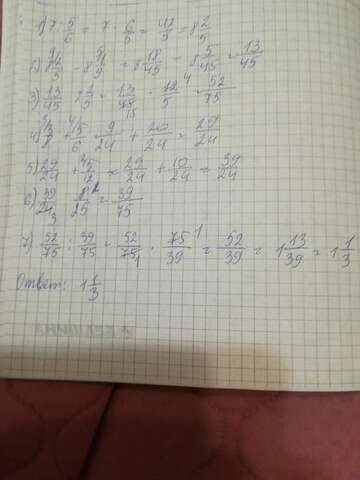 1) 7 : 5/6 = 7 · 6/5 = 42/5 = 8 2/5
2) 8 2/5 - 8 5/9 = 8 18/45 - 8 5/45 = 13/45
3) 13/45 · 2 2/5 = 13/45 15 · 12/5 4 = 52/75
4) 3/8 + 5/6 = 9/24 + 20/24 = 29/24
5) 29/24 + 5/12 = 29/24 + 10/24 = 39/24
6) 39/24 3 · 8/25 = 39/75
7) 52/75 : 39/75 = 52/75 1 · 75/39 1 = 52/39 = 1 13/39 = 1 1/3
Ответ: 1 1/3